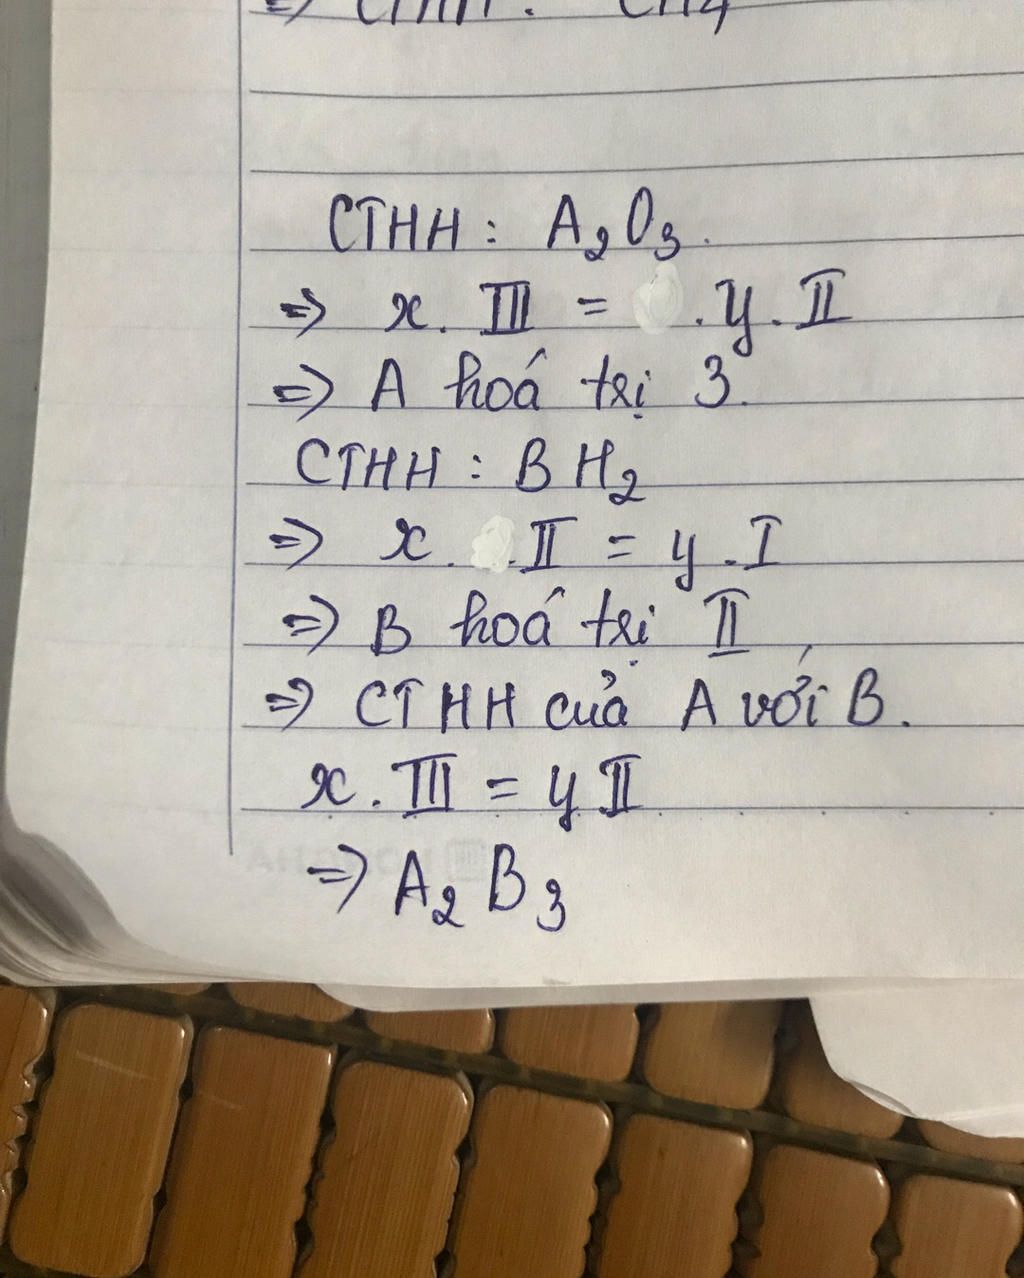 => CTHH : CH4
CTHH : A₂O₃.
=> x. III = .y. II
=> A hoá trị 3.
CTHH : BH₂
=> x. II = y. I
=> B hoá trị II
=> CTHH của A với B.
x. III = y II
=> A₂B₃